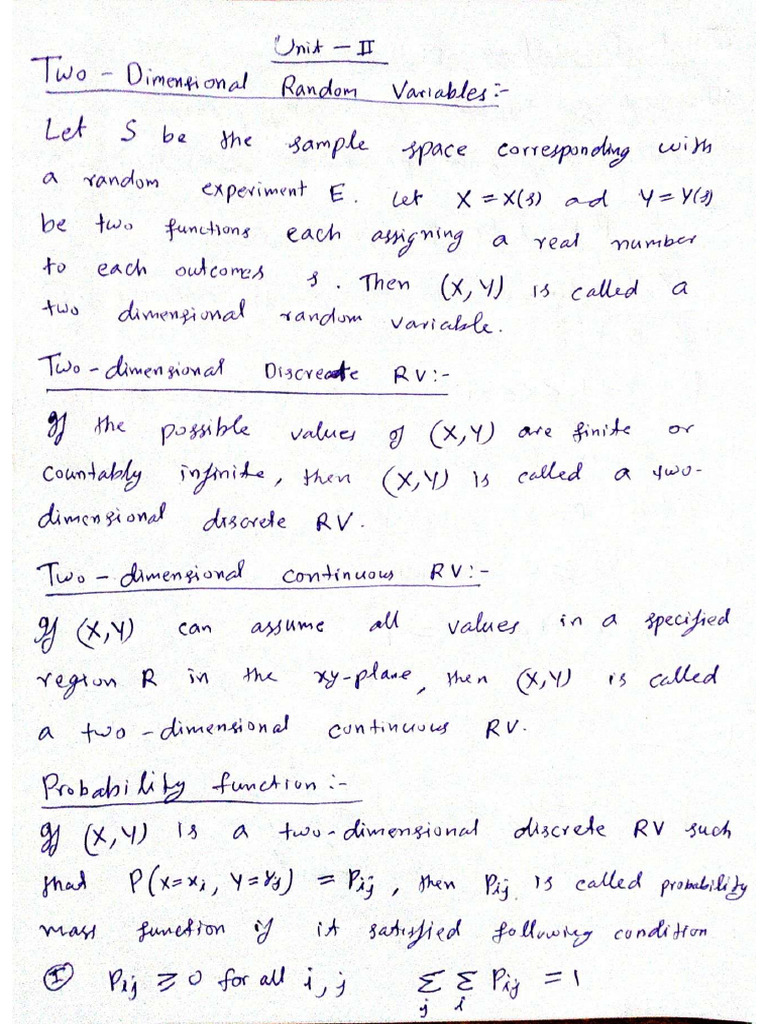 Unit - II
Two - Dimensional Random Variables:-
Let S be the sample space corresponding with
a random experiment E. Let X = X(s) ad Y = Y(s)
be two functions each assigning a real number
to each outcomes s. Then (X, Y) is called a
two dimensional random variable.
Two-dimensional Discreate RV:-
If the possible values of (X,Y) are finite or
countably infinite, then (X,Y) is called a two-
dimensional discrete RV.
Two - dimensional continuous RV:-
If (X,Y) can assume all values in a specified
region R in the xy-plane, then (X,Y) is called
a two-dimensional continuous RV.
Probability function:-
If (X,Y) is a two-dimensional discrete RV such
that P(X=xi, Y=Yj) = Pij, then Pij is called probability
mass function if it satisfied following condition
① Pij ≥ 0 for all i, j Σj Σi Pij = 1